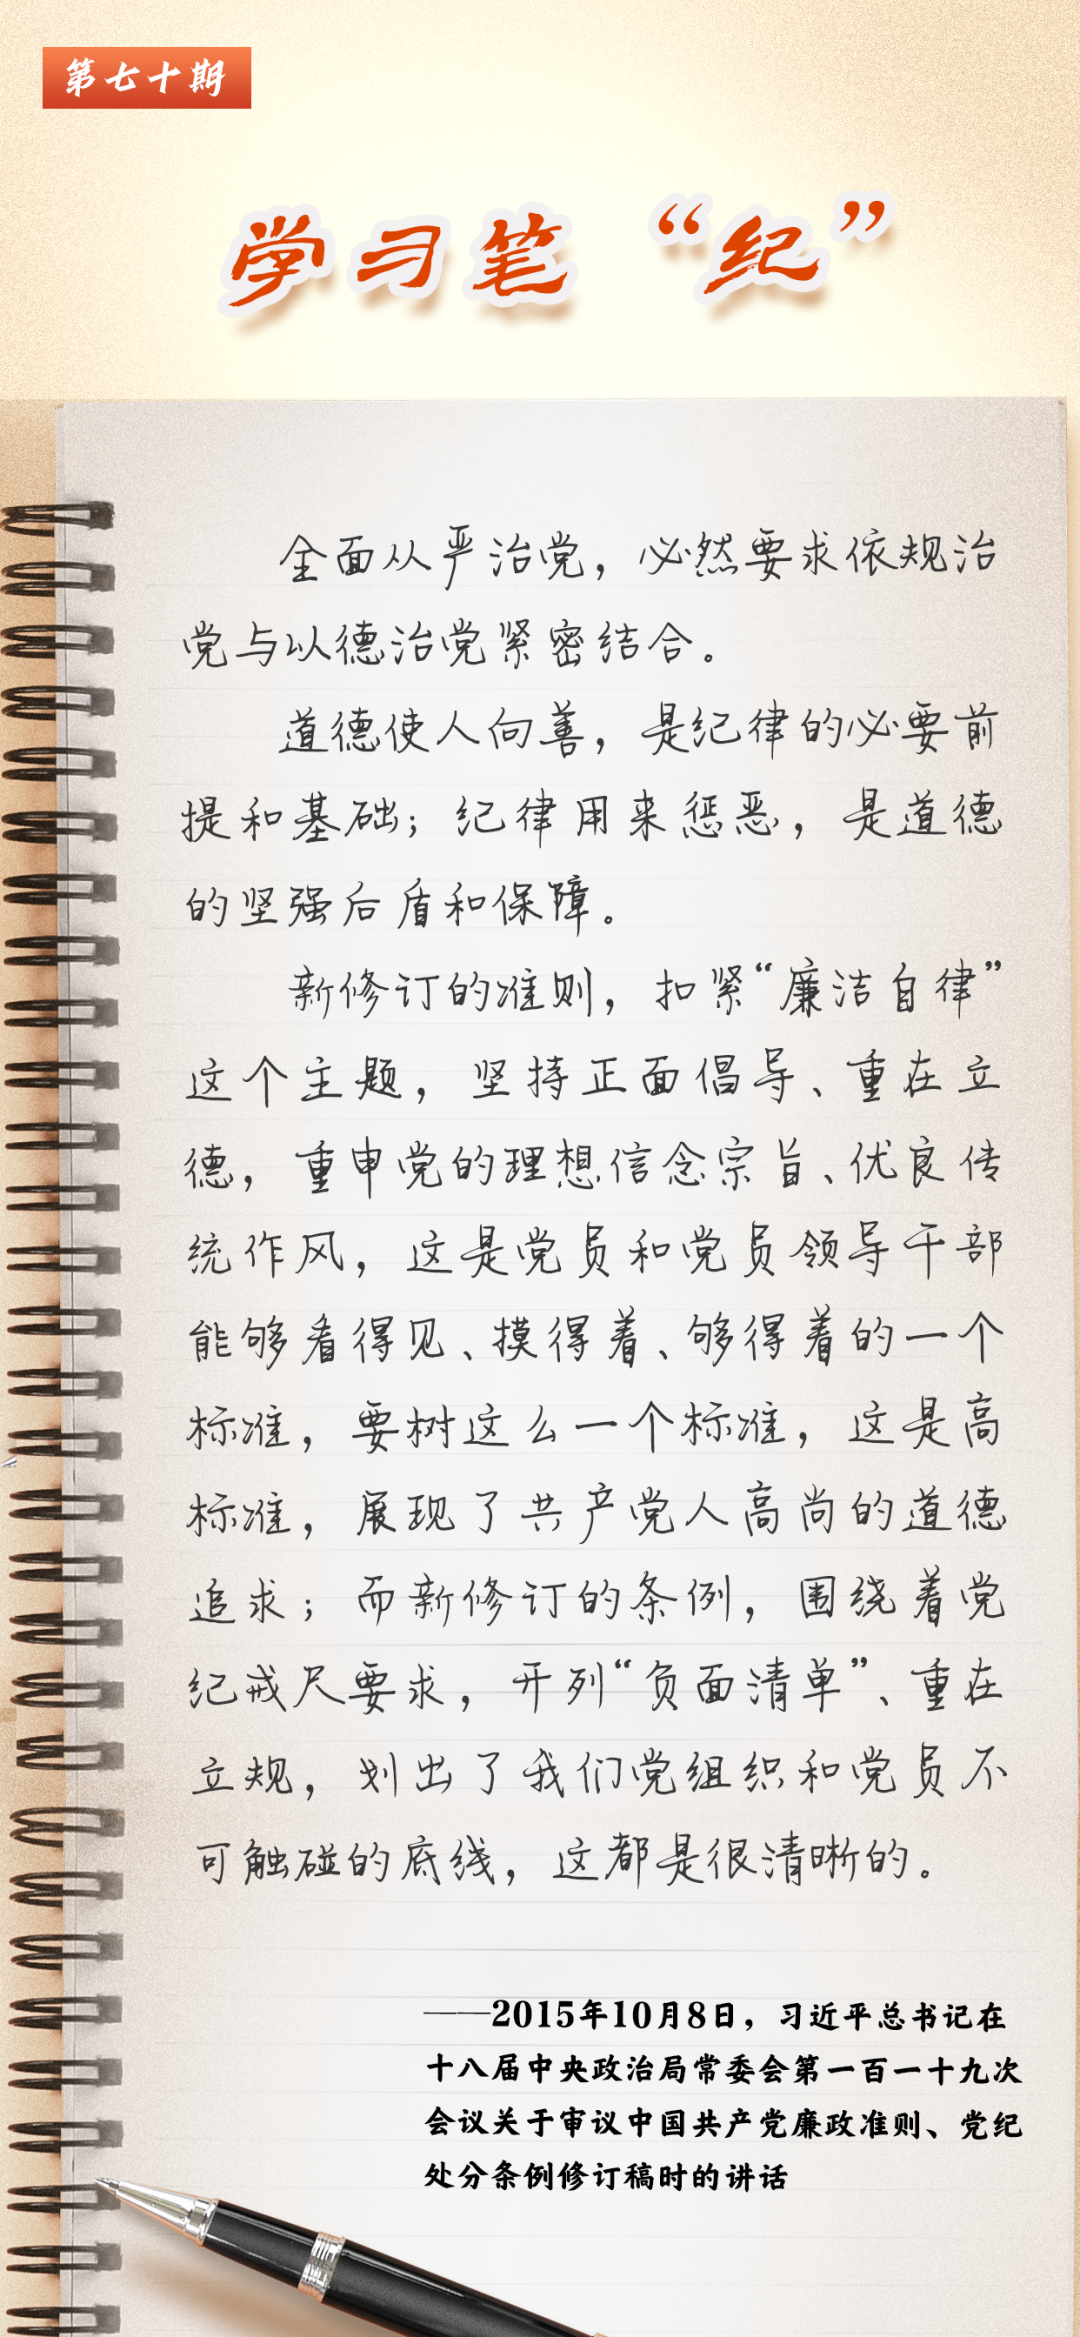 第七十期
学习笔“纪”
全面从严治党，必然要求依规治
党与以德治党紧密结合。
道德使人向善，是纪律的必要前
提和基础；纪律用来惩恶，是道德
的坚强后盾和保障。
新修订的准则，扣紧“廉洁自律”
这个主题，坚持正面倡导、重在立
德，重申党的理想信念宗旨、优良传
统作风，这是党员和党员领导干部
能够看得见、摸得着、够得着的一个
标准，要树这么一个标准，这是高
标准，展现了共产党人高尚的道德
追求；而新修订的条例，围绕着党
纪戒尺要求，开列“负面清单”、重在
立规，划出了我们党组织和党员不
可触碰的底线，这都是很清晰的。
——2015年10月8日，习近平总书记在
十八届中央政治局常委会第一百一十九次
会议关于审议中国共产党廉政准则、党纪
处分条例修订稿时的讲话